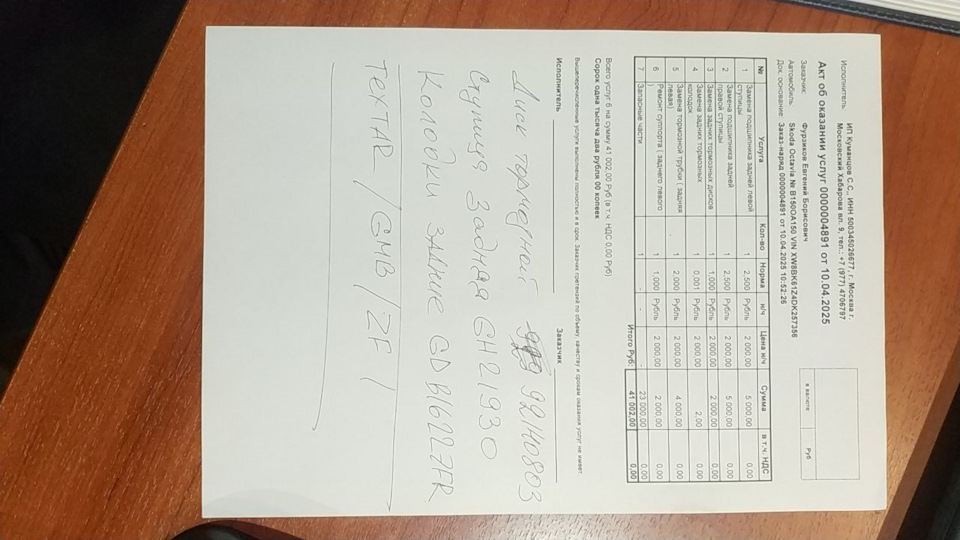 Исполнитель: ИП Куманцов С.С., ИНН 500345026677, г. Москва г,
Московский Хабарова вл. 9, тел.: +7 (977) 4706797
Акт об оказании услуг 0000004891 от 10.04.2025
Заказчик: Фурзиков Евгений Борисович
Автомобиль: Skoda Octavia № В150ОА150 VIN XW8BK61Z4DK257356
Док. основание: Заказ-наряд 0000004891 от 10.04.2025 10:52:26
в валюте Руб
№ Услуга Кол-во Норма н/ч Цена н/ч Сумма в т.ч. НДС
1 Замена подшипника задней левой ступицы 1 2,500 Рубль 2 000,00 5 000,00 0,00
2 Замена подшипника задней правой ступицы 1 2,500 Рубль 2 000,00 5 000,00 0,00
3 Замена задних тормозных дисков 1 1,000 Рубль 2 000,00 2 000,00 0,00
4 Замена задних тормозных колодок 1 0,001 Рубль 2 000,00 2,00 0,00
5 Замена тормозной трубки ( задняя левая) 1 2,000 Рубль 2 000,00 4 000,00 0,00
6 Ремонт суппорта ( заднего левого ) 1 1,000 Рубль 2 000,00 2 000,00 0,00
7 Запасные части 1 - - - 23 000,00 0,00
Итого Руб: 41 002,00 0,00
Всего услуг 6 на сумму 41 002,00 Руб (в т.ч. НДС 0,00 Руб)
Сорок одна тысяча два рубля 00 копеек
Вышеперечисленные услуги выполнены полностью и в срок. Заказчик претензий по объему, качеству и срокам оказания услуг не имеет.
Исполнитель Заказчик
Диск тормозной 92140803
Ступица задняя GH21930
Колодки задние GDB1622
ТЕХТАR / GMB / ZF /